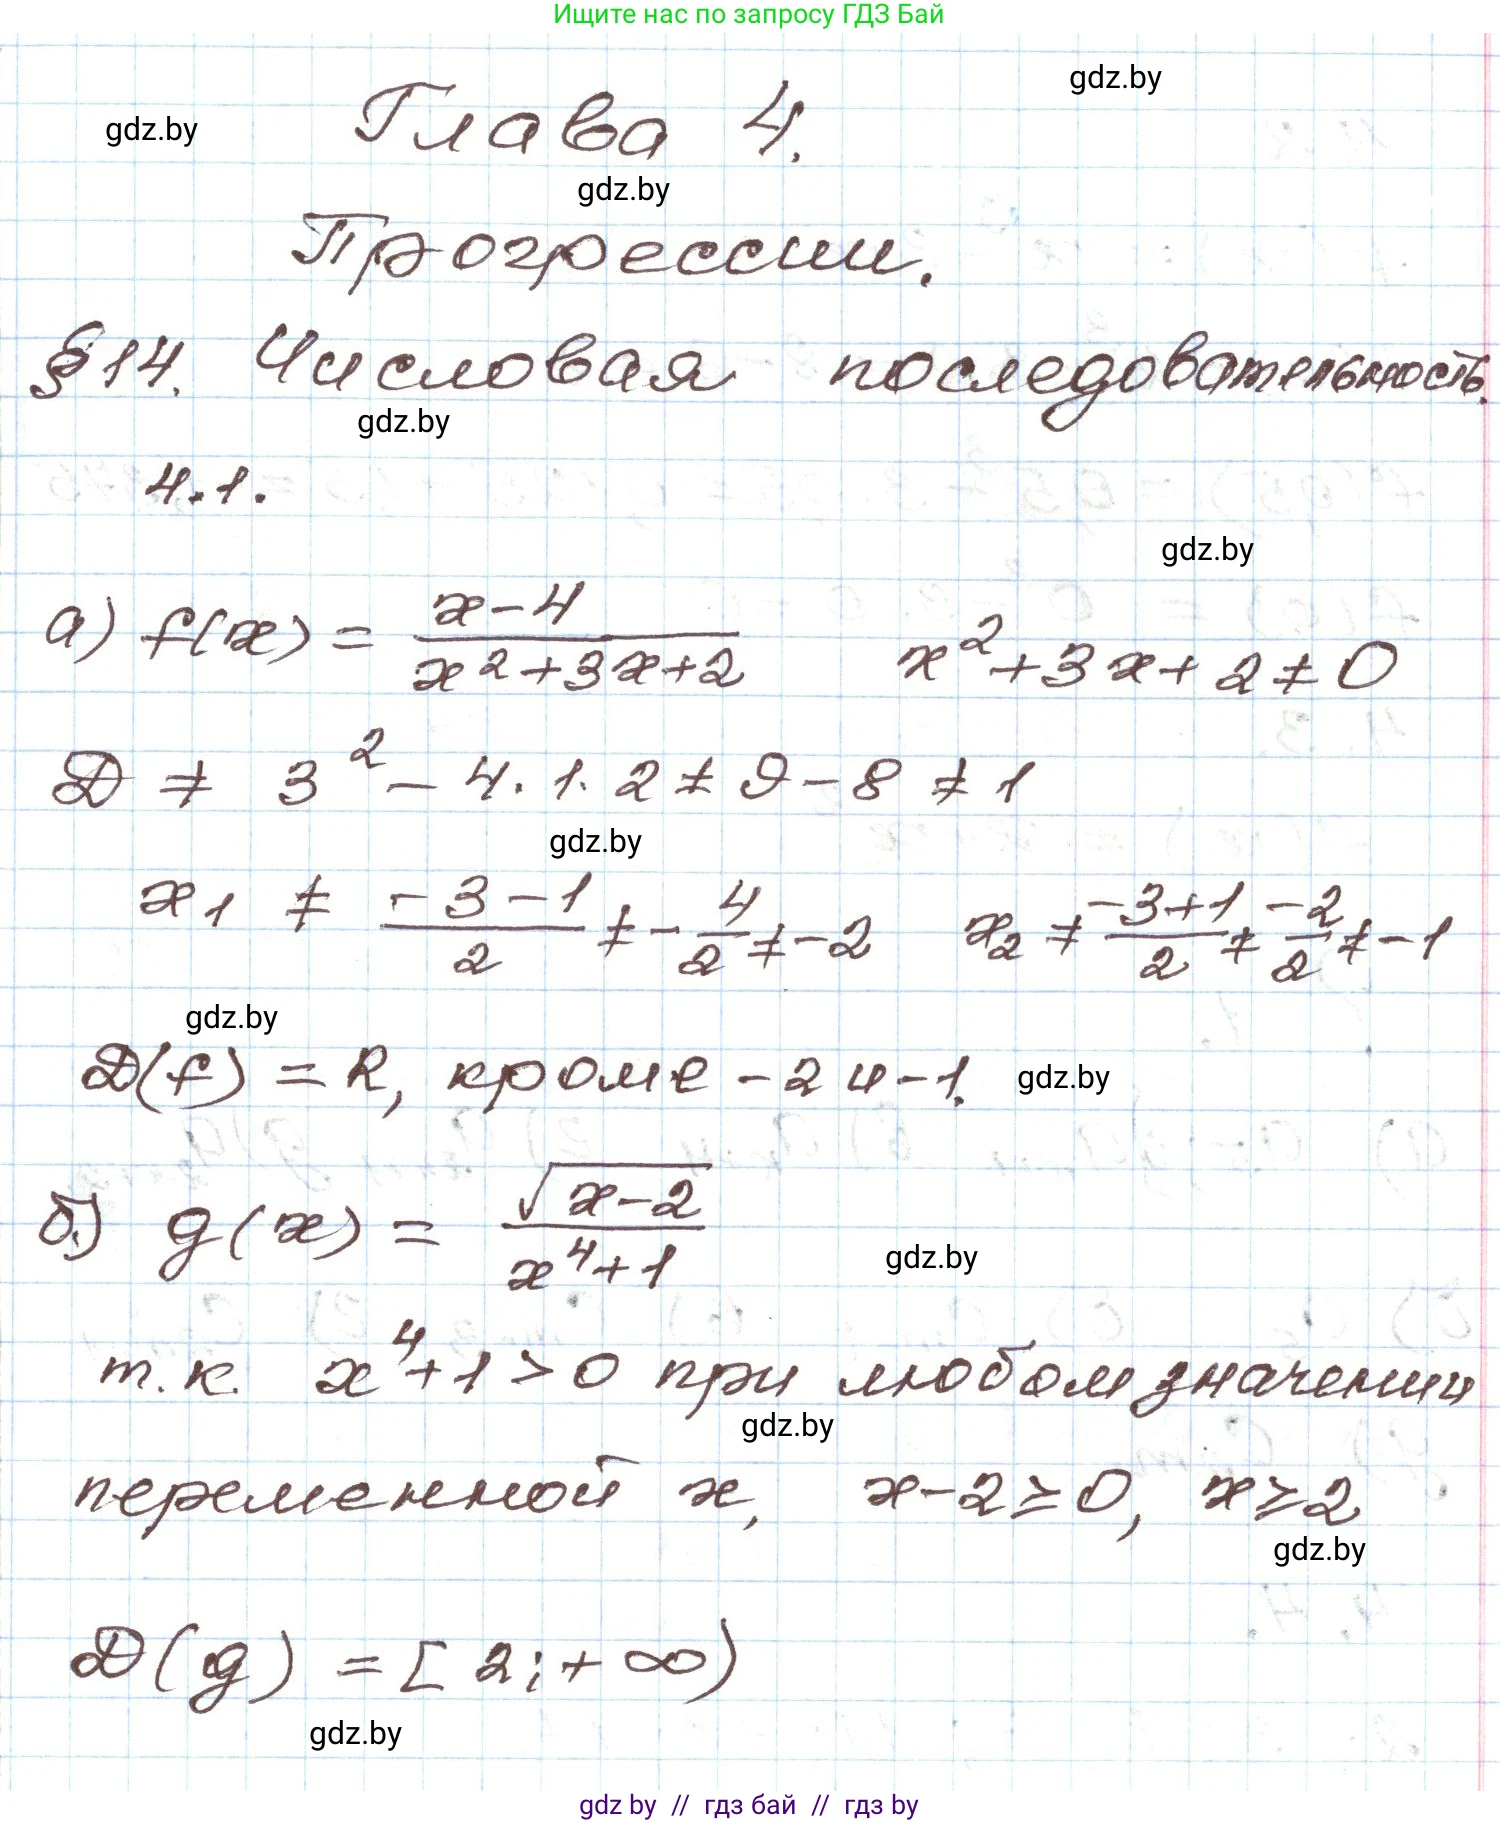 Ищите нас по запросу ГДЗ Бай
gdz.by
gdz.by
Глава 4.
gdz.by
Прогрессии.
§14. Числовая последовательность.
gdz.by
4.1.
gdz.by
а) f(x) = (x-4)/(x²+3x+2)   x²+3x+2≠0
D ≠ 3² - 4·1·2 ≠ 9-8 ≠ 1
gdz.by
x₁ ≠ (-3-1)/2 ≠ -4/2 ≠ -2   x₂ ≠ (-3+1)/2 ≠ -2/2 ≠ -1
gdz.by
D(f) = R, кроме -2 и -1.
gdz.by
б) g(x) = √(x-2)/(x⁴+1)
gdz.by
т.к. x⁴+1>0 при любом значении
gdz.by
переменной x, x-2≥0, x≥2
gdz.by
D(g) = [2;+∞)
gdz.by
gdz by // гдз бай // гдз by